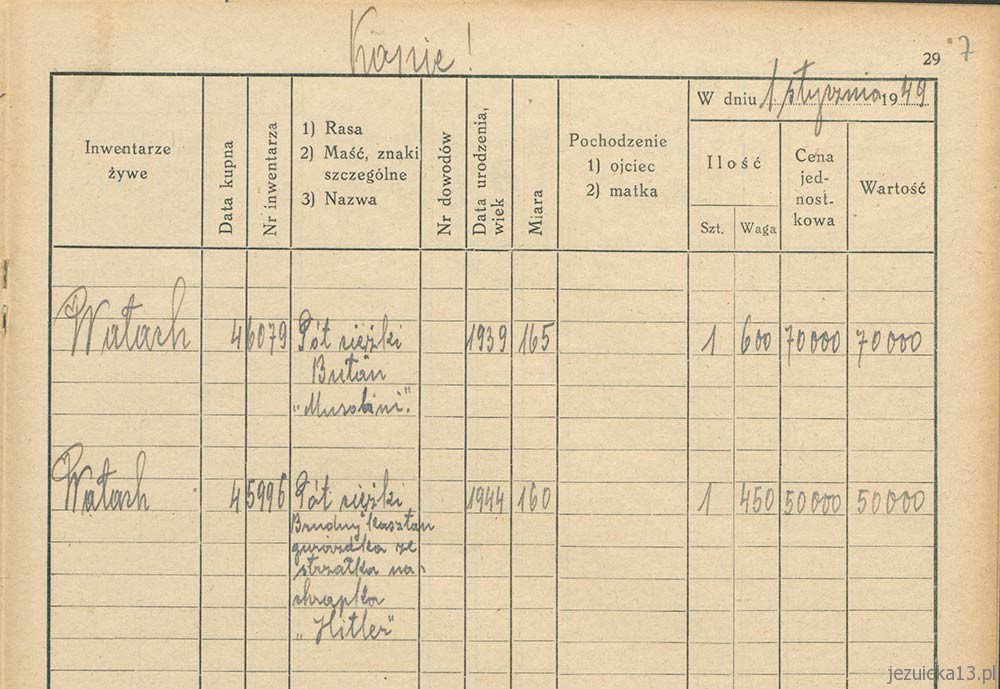 Konie!
29 7
W dniu 1 stycznia 1949
Inwentarze
żywe
Data kupna
Nr inwentarza
1) Rasa
2) Maść, znaki
szczególne
3) Nazwa
Nr dowodów
Data urodzenia,
wiek
Miara
Pochodzenie
1) ojciec
2) matka
Ilość
Szt.
Waga
Cena
jed-
nost-
kowa
Wartość
Wałach 46079 Pół ciężki 1939 165 1 600 70000 70000
Bułan
„Musolini."
Wałach 45996 Pół ciężki 1944 160 1 450 50000 50000
Brudny kasztan
gwiozdka ze
strzałka na
chrapka
„Hitler"
jezuicka13.pl